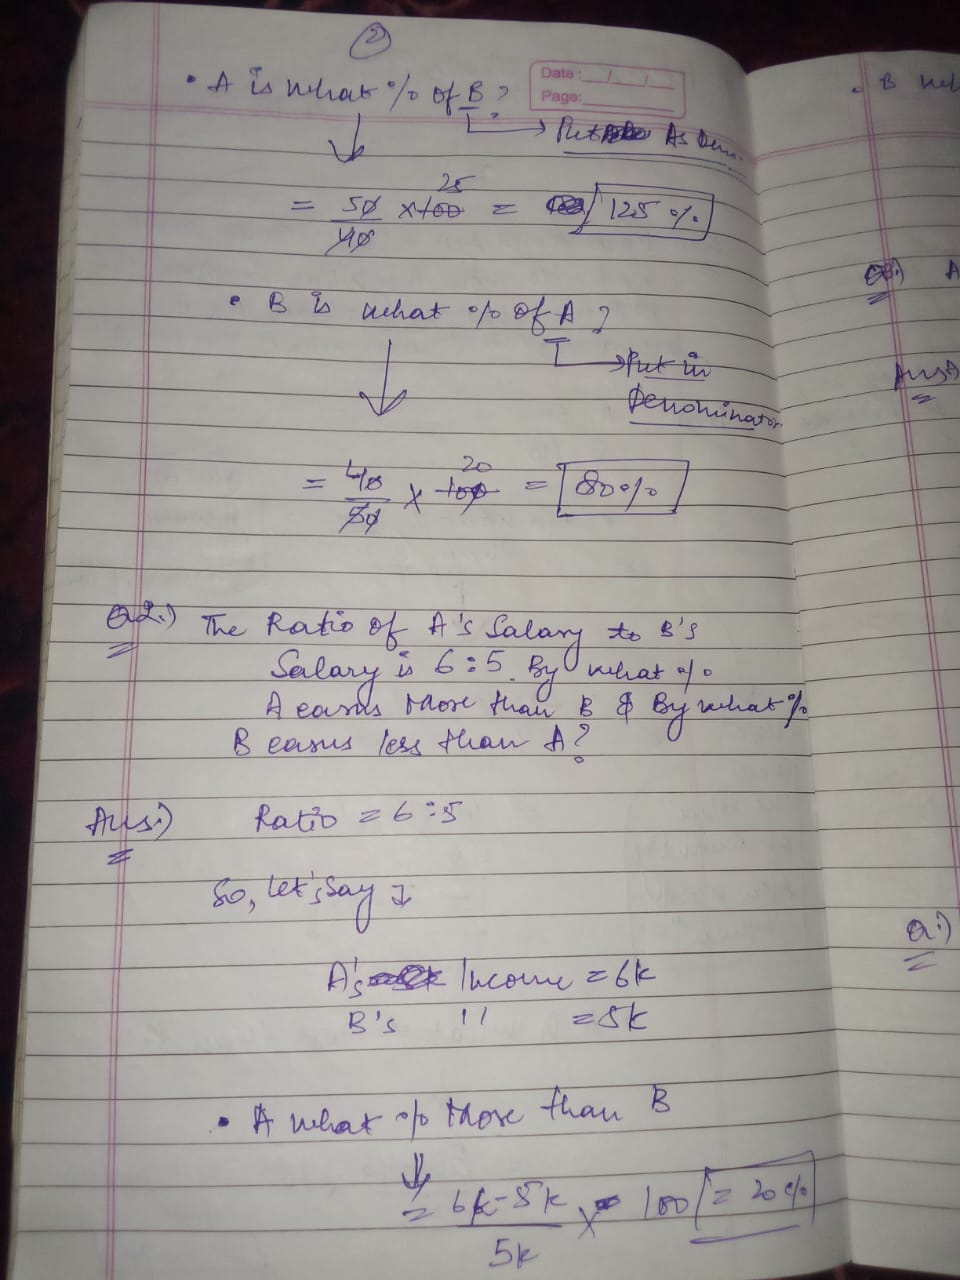 2
• A is what % of B?
Date: __/__/__
Page: ______
Put As Deno.
= 50/40 × 100 25 = 125 %
• B is what % of A?
Put in
Denominator
= 40/50 × 100 20 = 80%
Q2.) The Ratio of A's Salary to B's
Salary is 6:5. By what %
A earns more than B & By what %
B earns less than A?
Ans:) Ratio = 6:5
So, let's say
A's Income = 6k
B's " = 5k
• A what % more than B
= 6k-5k/5k × 100 = 20%
• B
Q3:) A
Ans:)
Q:)